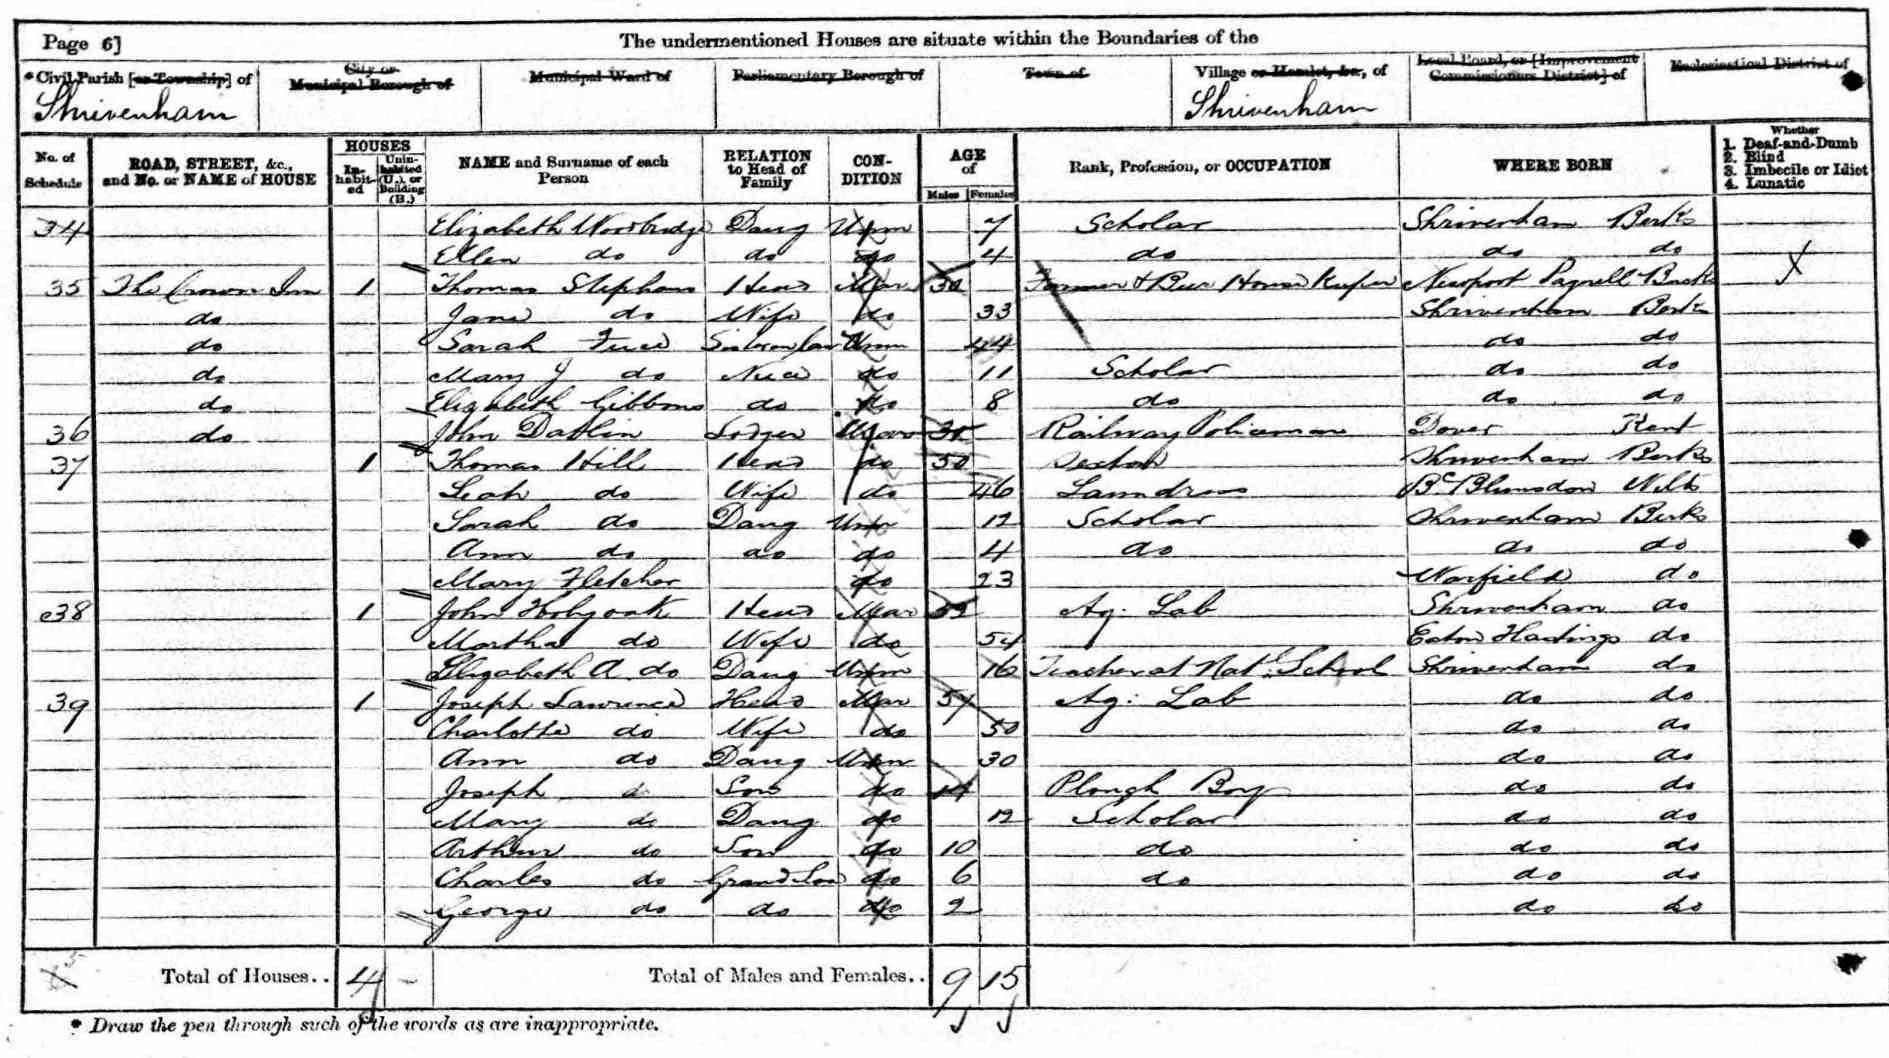 Page 6]
The undermentioned Houses are situate within the Boundaries of the
* Civil Parish [or Township] of
City or Municipal Borough of
Municipal Ward of
Parliamentary Borough of
Town of
Village or Hamlet, &c., of
Local Board, or [Improvement Commissioners District] of
Ecclesiastical District of
Shrivenham Shrivenham
No. of Schedule
ROAD, STREET, &c., and No. or NAME of HOUSE
HOUSES
Inhabited
Uninhabited (U.), or Building (B.)
NAME and Surname of each Person
RELATION to Head of Family
CONDITION
AGE of
Males Females
Rank, Profession, or OCCUPATION
WHERE BORN
Whether
1. Deaf-and-Dumb
2. Blind
3. Imbecile or Idiot
4. Lunatic
34 Elizabeth Woodbridge Daug Unm 7 Scholar Shrivenham Berks
Ellen do do do 4 do do do
35 The Crown Inn 1 Thomas Stephens Head Mar 30 Farmer & Beer House Keeper Newport Pagnell Bucks
do Jane do Wife do 33 Shrivenham Berks
do Sarah Sister in law Unm 44 do do
do Mary J do Niece do 11 Scholar do do
do Elizabeth Gibbons do do 8 do do do
36 do John Lodger 35 Railway Policeman Dover Kent
37 1 Thomas Hill Head do 50 Sexton Shrivenham Berks
Leah do Wife do 46 Laundress Bd Blunsdon Wilts
Sarah do Daug Unm 12 Scholar Shrivenham Berks
Ann do do do 4 do do do
Mary Fletcher do 23 Warfield do
38 1 John Holyoak Head Mar Ag: Lab Shrivenham do
Martha do Wife do 54 Eaton Hastings do
Elizabeth A do Daug Unm 16 Teacher at Natl: School Shrivenham do
39 1 Joseph Lawrence Head Mar 57 Ag: Lab do do
Charlotte do Wife do 50 do do
Ann do Daug Unm 30 do do
Joseph do Son do 14 Plough Boy do do
Mary do Daug do 12 Scholar do do
Arthur do Son do 10 do do do
Charles do Grand Son do 6 do do do
George do do do 2 do do
Total of Houses.. 4 -
Total of Males and Females.. 9 15
* Draw the pen through such of the words as are inappropriate.